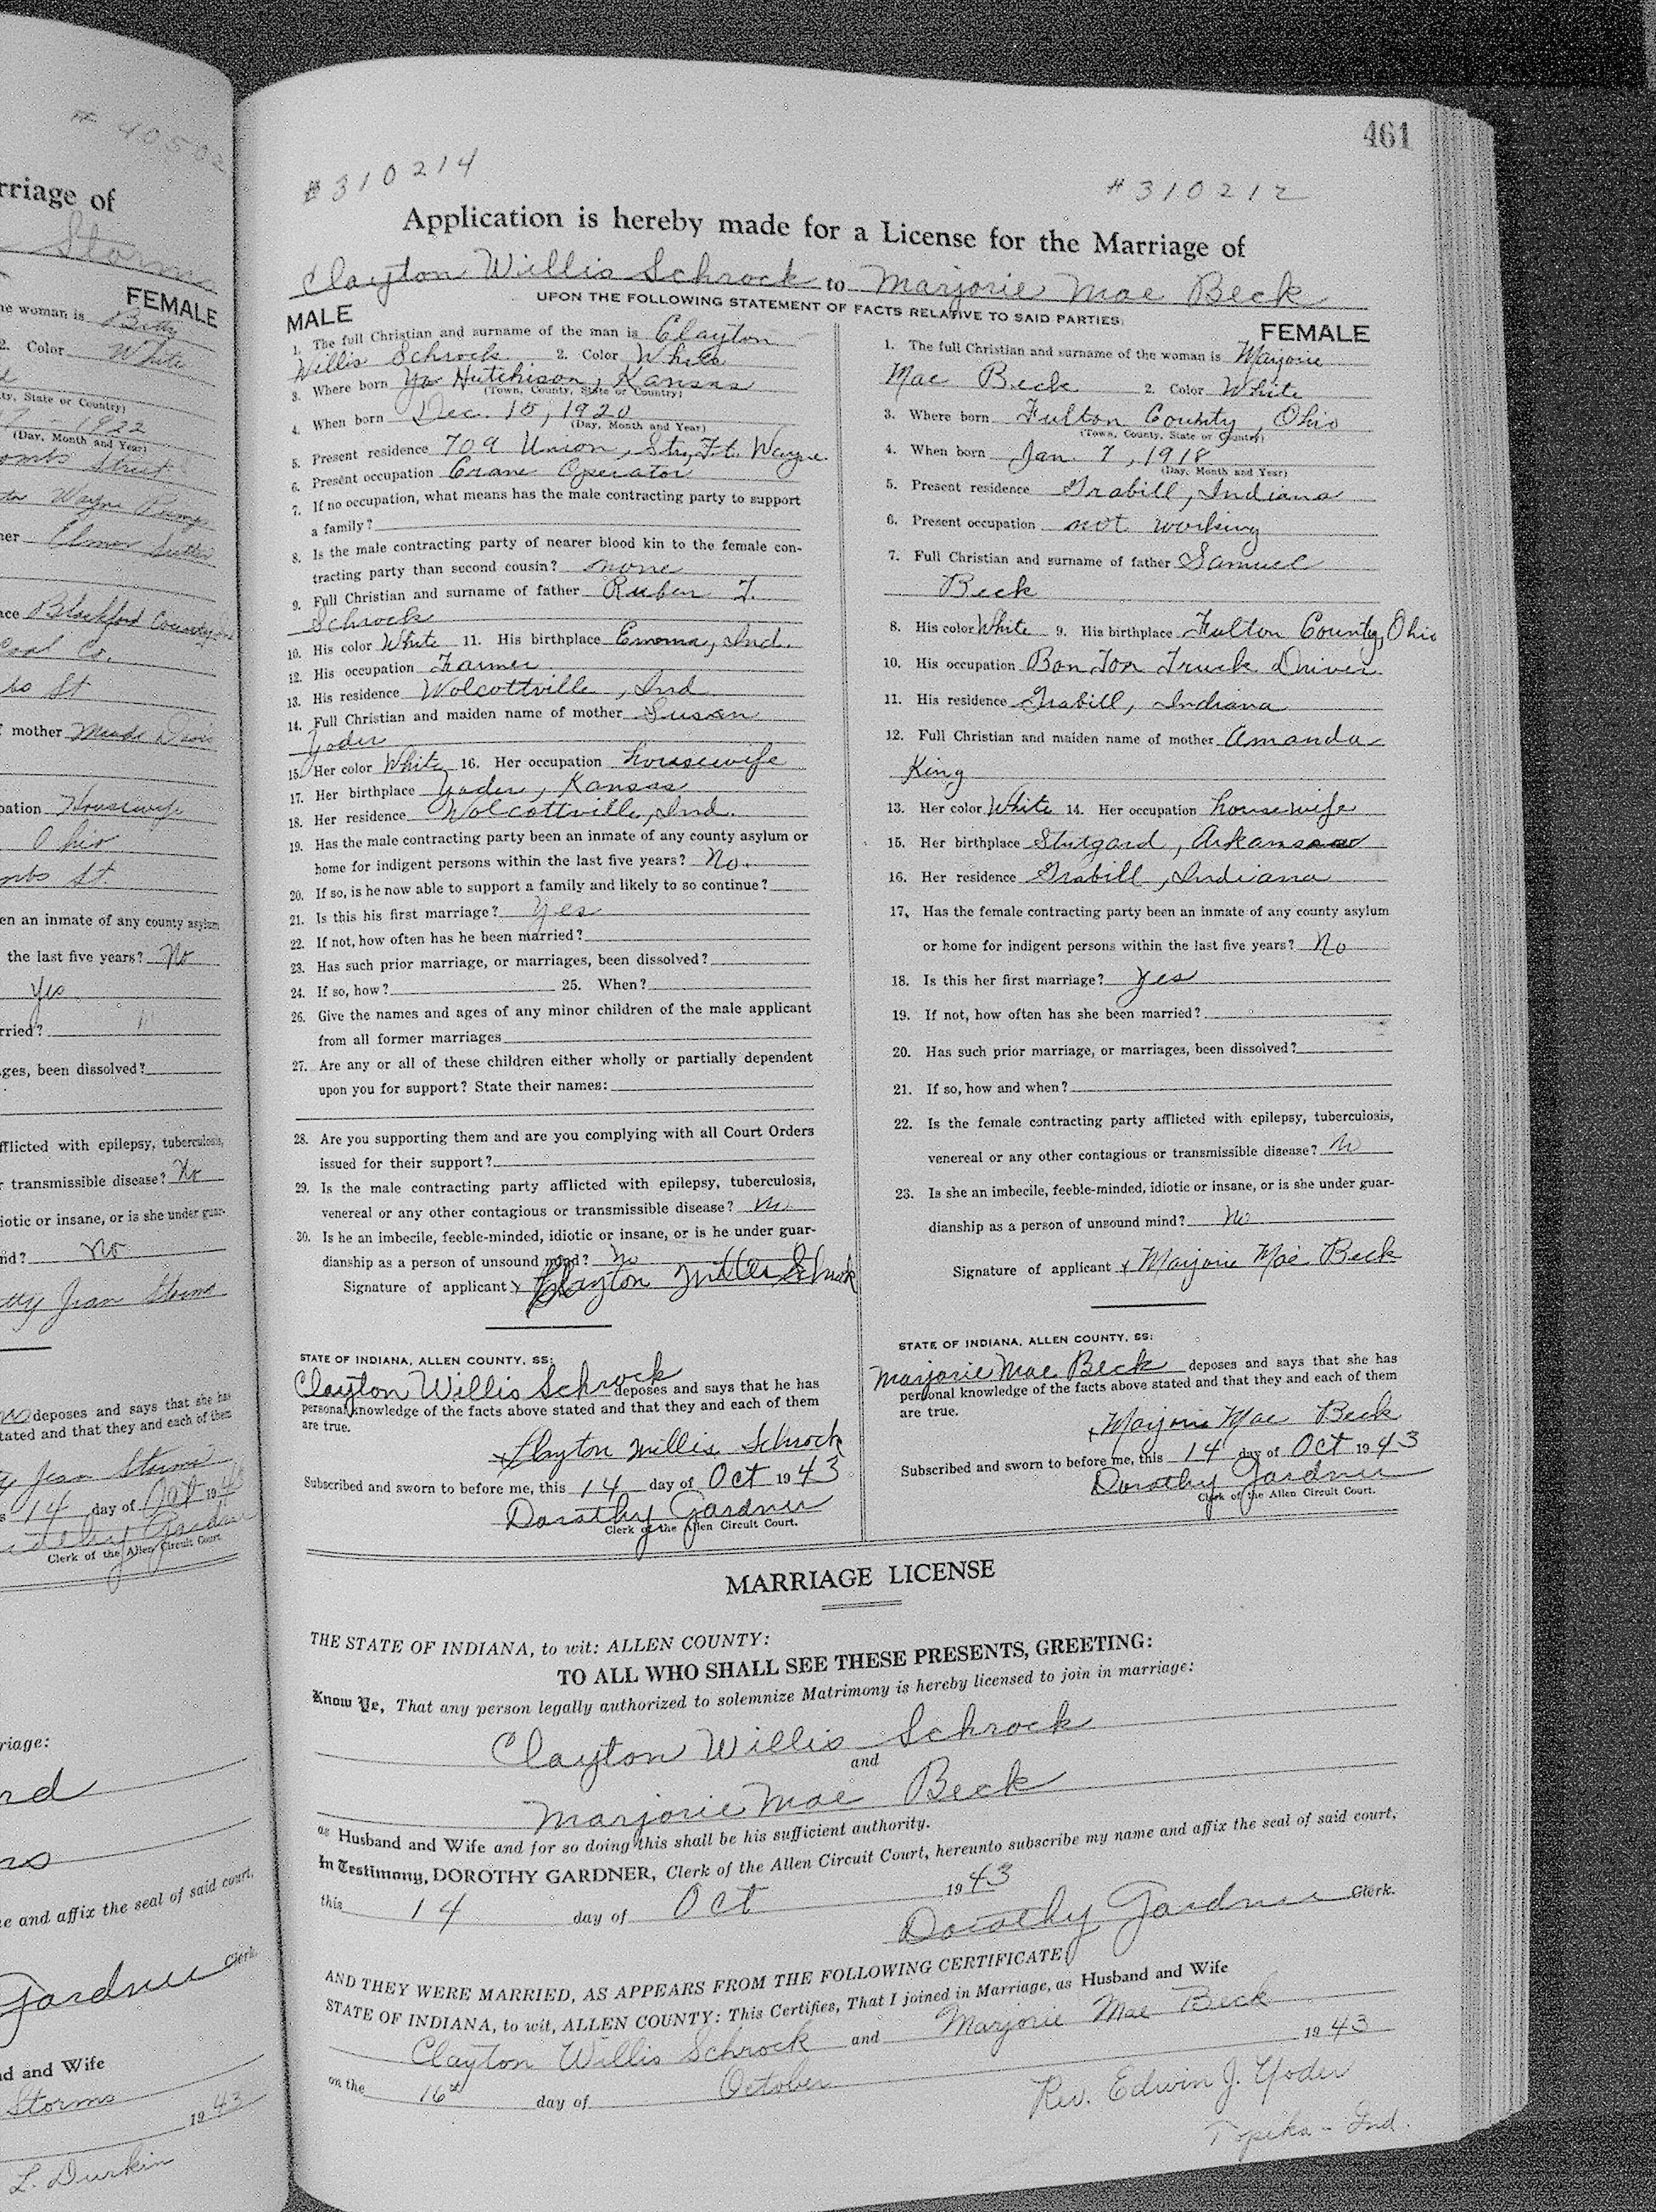 # 40502
rriage of
Storms
FEMALE
ne woman is Betty
2. Color White
ty, State or Country)
1922
(Day, Month and Year)
Street
Wayne Pump
her Elmer
ace Blackford County, Ind
Coal Co.
St
f mother Maude
pation Housewife
Ohio
St.
en an inmate of any county asylum
the last five years? No
Yes
rried?
ges, been dissolved?
fflicted with epilepsy, tuberculosis,
r transmissible disease? No
iotic or insane, or is she under guar-
nd? No
etty Jean Storms
deposes and says that she has
tated and that they and each of them
y Jean Storms
s 14 day of Oct 1943
Gardner
Clerk of the Allen Circuit Court.
riage:
rd
e and affix the seal of said court,
Gardner Clerk.
nd and Wife
Storms
1943
L. Durkin
461
# 310214 # 310212
Application is hereby made for a License for the Marriage of
Clayton Willis Schrock to Marjorie Mae Beck
UPON THE FOLLOWING STATEMENT OF FACTS RELATIVE TO SAID PARTIES:
MALE
1. The full Christian and surname of the man is Clayton
Willis Schrock 2. Color White
3. Where born Yo Hutchison, Kansas
(Town, County, State or Country)
4. When born Dec. 15, 1920
(Day, Month and Year)
5. Present residence 709 Union, Str, Ft. Wayne
6. Present occupation Crane Operator
7. If no occupation, what means has the male contracting party to support
a family?
8. Is the male contracting party of nearer blood kin to the female con-
tracting party than second cousin? none
9. Full Christian and surname of father Ruben T.
Schrock
10. His color White 11. His birthplace Emoma, Ind.
12. His occupation Farmer
13. His residence Wolcottville, Ind
14. Full Christian and maiden name of mother Susan
Yoder
15. Her color White 16. Her occupation housewife
17. Her birthplace Yoder, Kansas
18. Her residence Wolcottville, Ind.
19. Has the male contracting party been an inmate of any county asylum or
home for indigent persons within the last five years? No.
20. If so, is he now able to support a family and likely to so continue?
21. Is this his first marriage? Yes
22. If not, how often has he been married?
23. Has such prior marriage, or marriages, been dissolved?
24. If so, how? 25. When?
26. Give the names and ages of any minor children of the male applicant
from all former marriages
27. Are any or all of these children either wholly or partially dependent
upon you for support? State their names:
28. Are you supporting them and are you complying with all Court Orders
issued for their support?
29. Is the male contracting party afflicted with epilepsy, tuberculosis,
venereal or any other contagious or transmissible disease? no
30. Is he an imbecile, feeble-minded, idiotic or insane, or is he under guar-
dianship as a person of unsound mind? no
Signature of applicant x Clayton Willis Schrock
STATE OF INDIANA, ALLEN COUNTY, SS:
Clayton Willis Schrock deposes and says that he has
personal knowledge of the facts above stated and that they and each of them
are true.
x Clayton Willis Schrock
Subscribed and sworn to before me, this 14 day of Oct 1943
Dorothy Gardner
Clerk of the Allen Circuit Court.
FEMALE
1. The full Christian and surname of the woman is Marjorie
Mae Beck 2. Color White
3. Where born Fulton County, Ohio
(Town, County, State or Country)
4. When born Jan. 7, 1918
(Day, Month and Year)
5. Present residence Grabill, Indiana
6. Present occupation not working
7. Full Christian and surname of father Samuel
Beck
8. His color White 9. His birthplace Fulton County, Ohio
10. His occupation Bon Ton Truck Driver
11. His residence Grabill, Indiana
12. Full Christian and maiden name of mother Amanda
King
13. Her color White 14. Her occupation housewife
15. Her birthplace Stutgard, Arkansas
16. Her residence Grabill, Indiana
17. Has the female contracting party been an inmate of any county asylum
or home for indigent persons within the last five years? No
18. Is this her first marriage? Yes
19. If not, how often has she been married?
20. Has such prior marriage, or marriages, been dissolved?
21. If so, how and when?
22. Is the female contracting party afflicted with epilepsy, tuberculosis,
venereal or any other contagious or transmissible disease? no
23. Is she an imbecile, feeble-minded, idiotic or insane, or is she under guar-
dianship as a person of unsound mind? no
Signature of applicant x Marjorie Mae Beck
STATE OF INDIANA, ALLEN COUNTY, SS:
Marjorie Mae Beck deposes and says that she has
personal knowledge of the facts above stated and that they and each of them
are true.
x Marjorie Mae Beck
Subscribed and sworn to before me, this 14 day of Oct 1943
Dorothy Gardner
Clerk of the Allen Circuit Court.
MARRIAGE LICENSE
THE STATE OF INDIANA, to wit: ALLEN COUNTY:
TO ALL WHO SHALL SEE THESE PRESENTS, GREETING:
Know Ye, That any person legally authorized to solemnize Matrimony is hereby licensed to join in marriage:
Clayton Willis Schrock
and
Marjorie Mae Beck
as Husband and Wife and for so doing this shall be his sufficient authority.
In Testimony, DOROTHY GARDNER, Clerk of the Allen Circuit Court, hereunto subscribe my name and affix the seal of said court,
this 14 day of Oct 1943
Dorothy Gardner Clerk.
AND THEY WERE MARRIED, AS APPEARS FROM THE FOLLOWING CERTIFICATE:
STATE OF INDIANA, to wit, ALLEN COUNTY: This Certifies, That I joined in Marriage, as Husband and Wife
Clayton Willis Schrock and Marjorie Mae Beck
on the 16th day of October 1943
Rev. Edwin J. Yoder
Topeka - Ind.